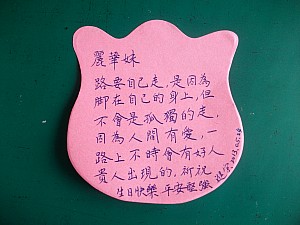 麗華妹
路要自己走,是因為
脚在自己的身上,但
不會是孤獨的走,
因為人間有愛,一
路上不時會有好人
貴人出現的,祈祝
生日快樂 平安堅強